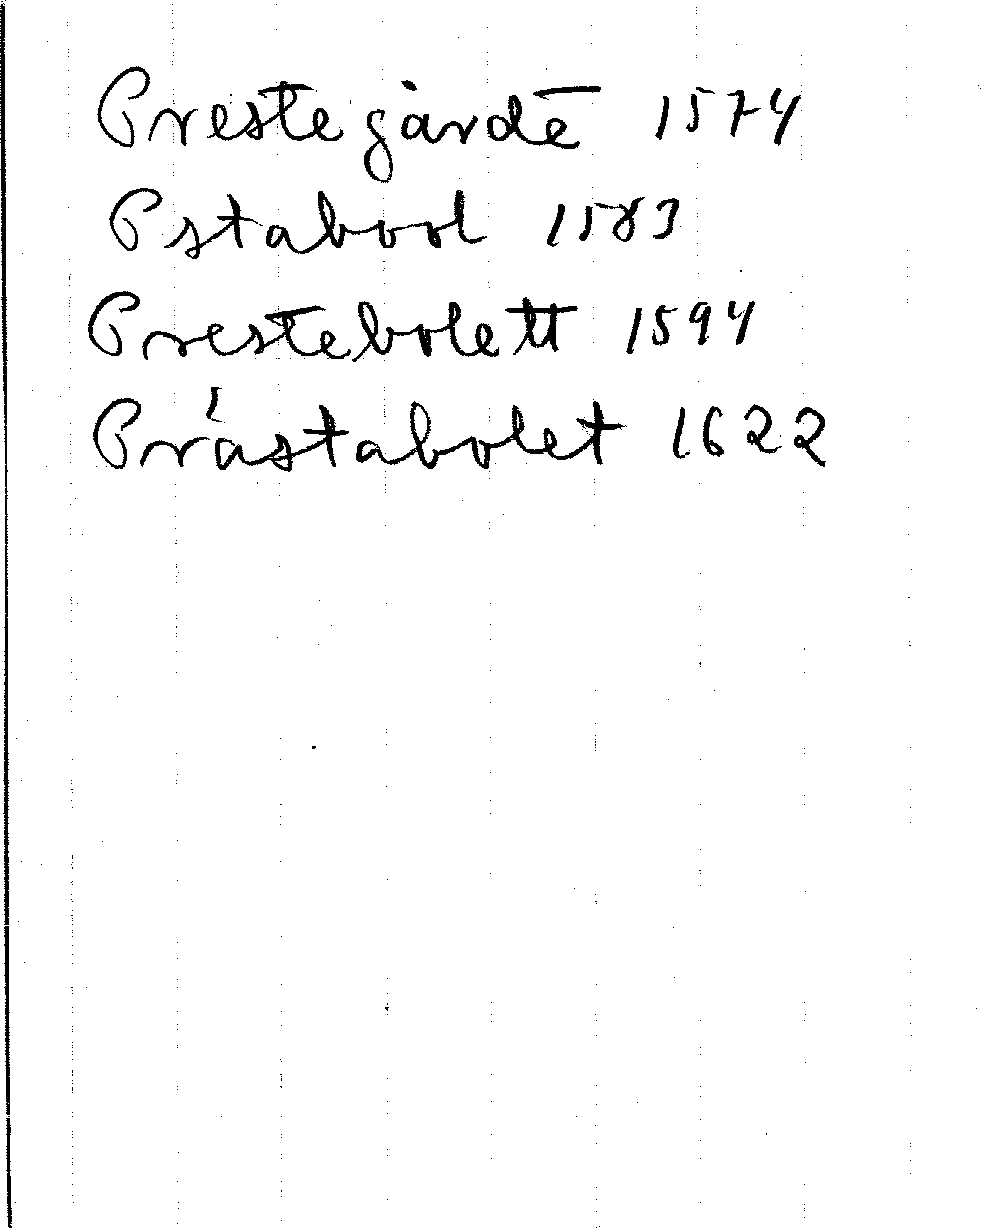 Prestegårdē 1574
Pstabool 1583
Prestebolett 1594
Prästabolet 1622